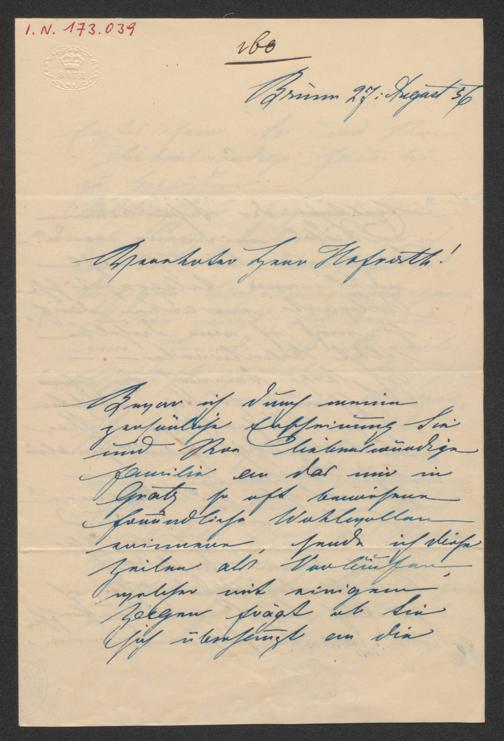 I.N. 173.039
160
Brünn 27: August 56
Verehrter Herr Hofrath!
Bevor ich durch meine
persönliche Erscheinung Sie
und Ihre liebenswürdige
Familie an das mir in
Gratz so oft bewiesene
freundliche Wohlwollen
erinnere, sende ich diese
Zeilen als Vorläufer,
welcher mit einigem
Zagen frägt ob Sie
sich überhaupt an die